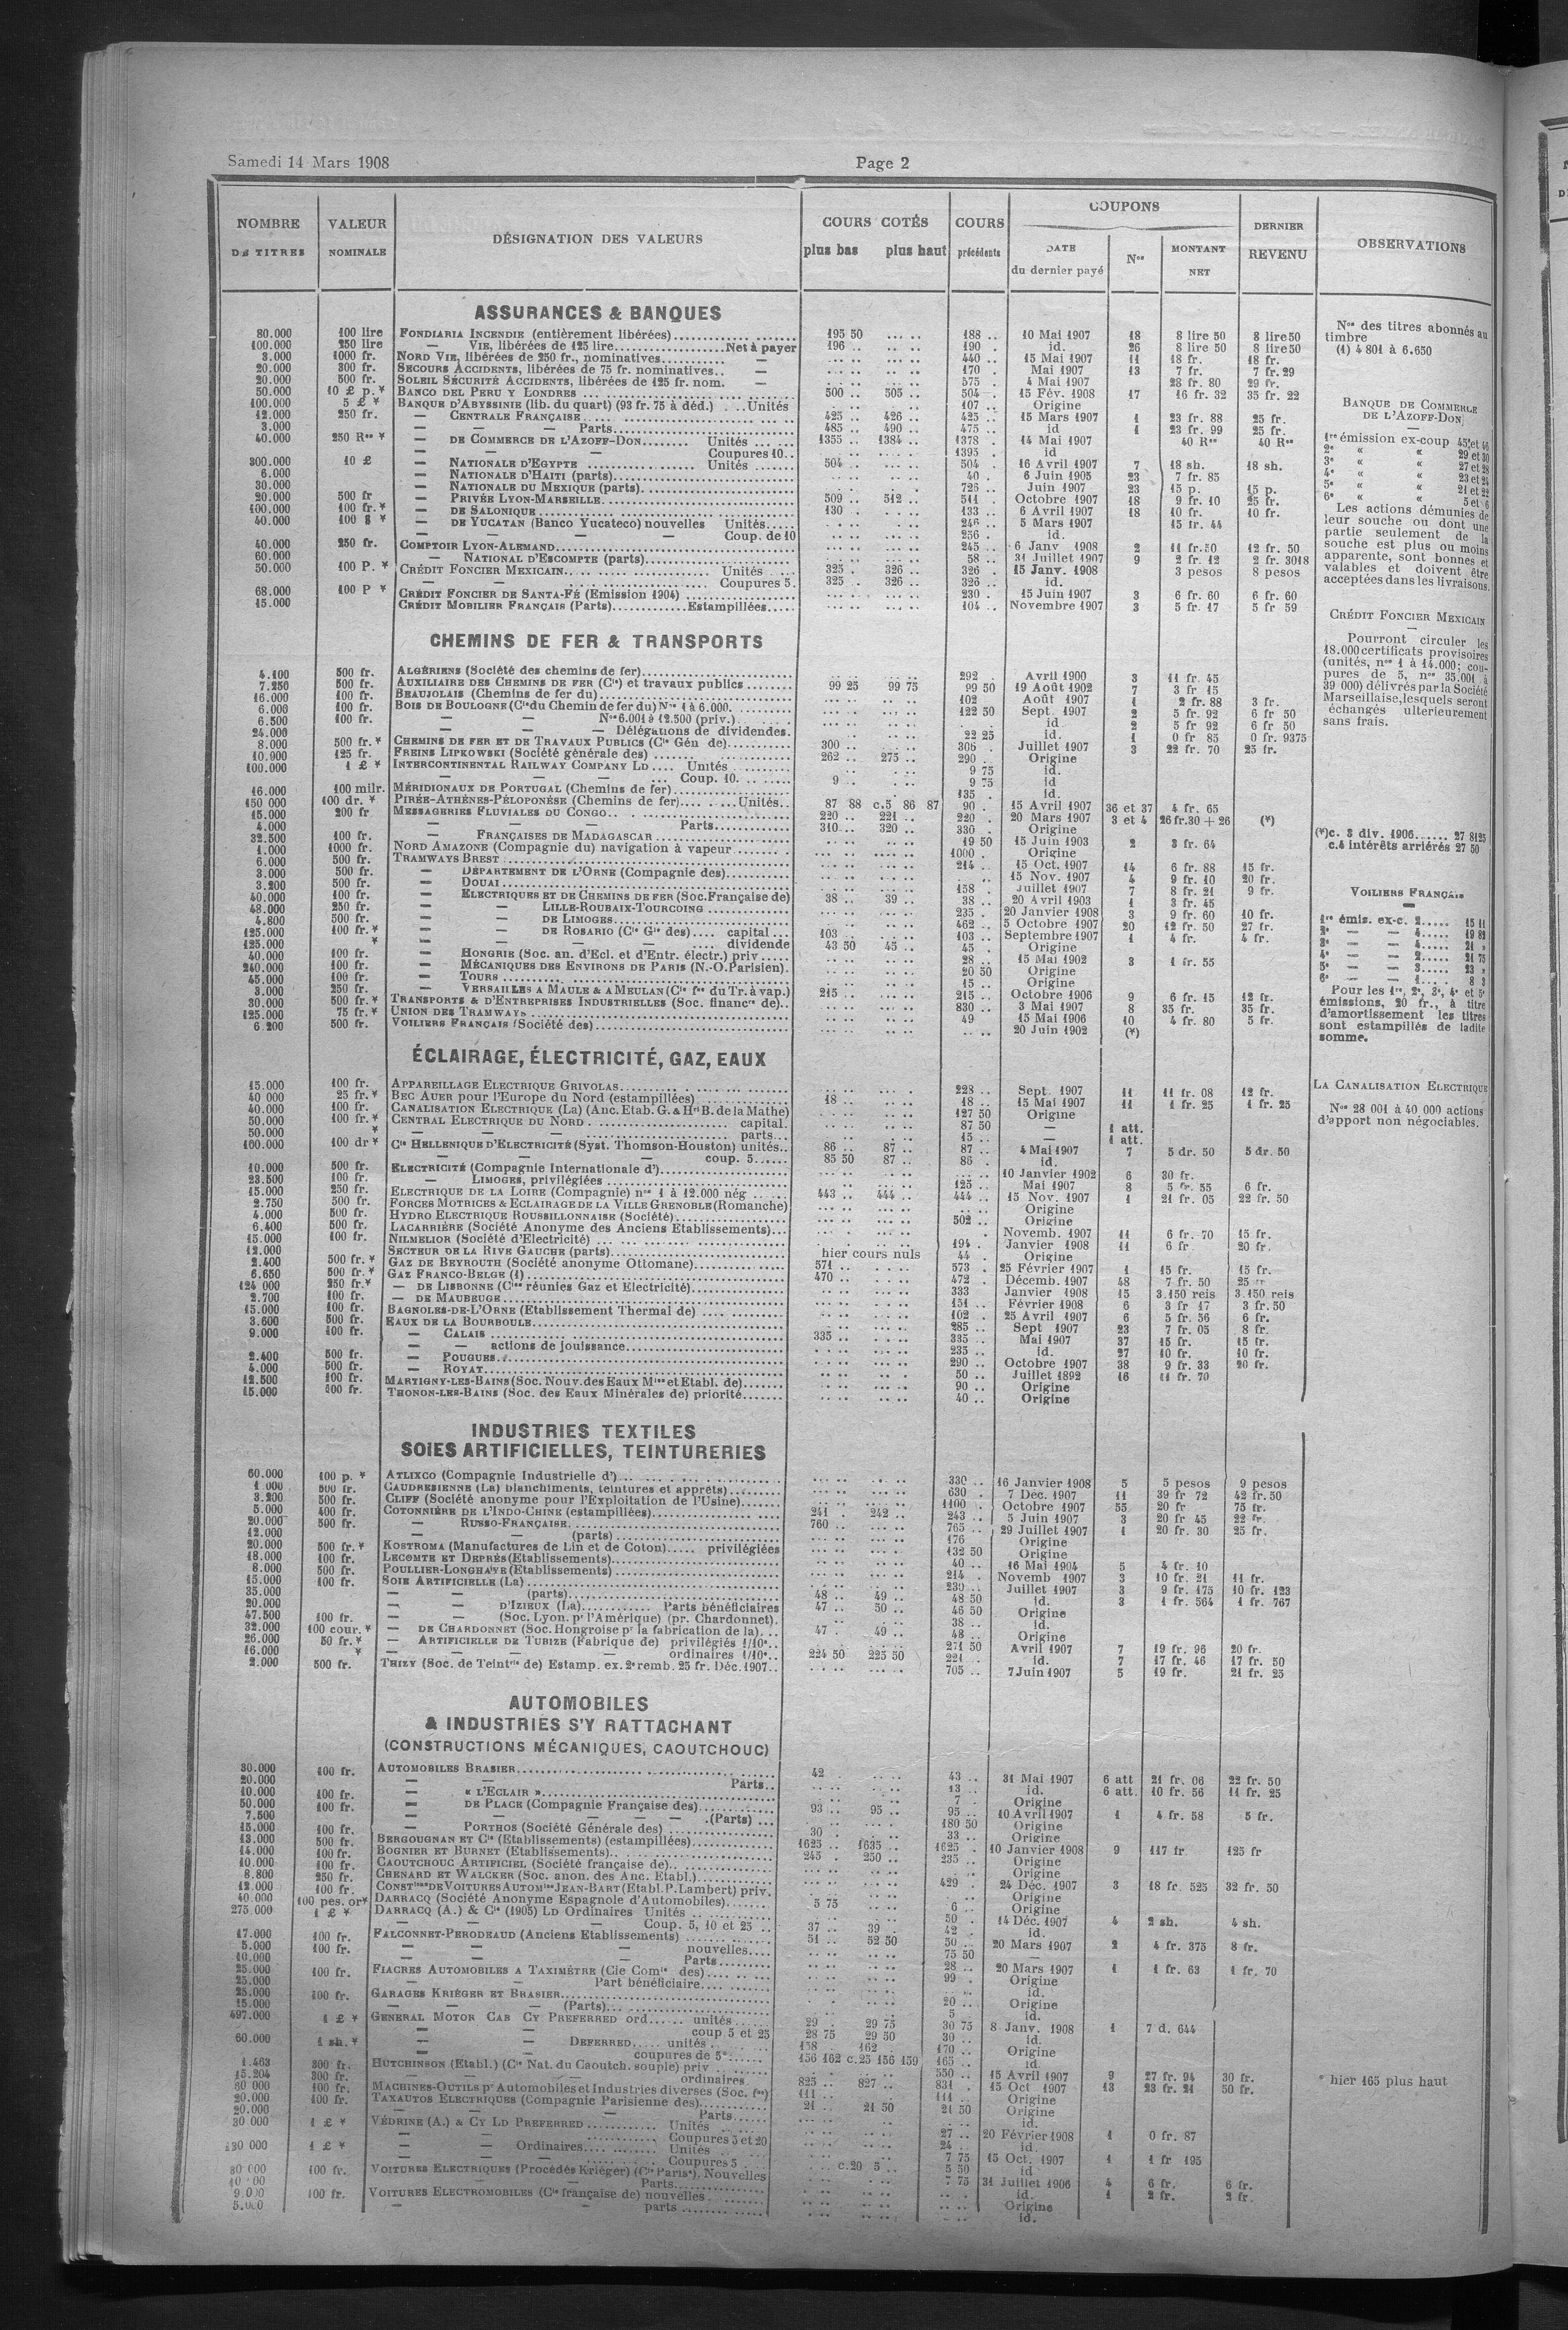 Samedi 14 Mars 1908
Page 2
NOMBRE DE TITRES
VALEUR NOMINALE
DÉSIGNATION DES VALEURS
COURS COTÉS
plus bas plus haut
COURS précédents
COUPONS
DATE du dernier payé
Nos
MONTANT NET
DERNIER REVENU
OBSERVATIONS
ASSURANCES & BANQUES
80.000 100 lire FONDIARIA INCENDIE (entièrement libérées) 195 50 188 .. 10 Mai 1907 18 8 lire 50 8 lire 50
100.000 250 lire — VIE, libérées de 125 lire Net à payer 196 .. 190 .. id. 26 8 lire 50 8 lire 50
3.000 1000 fr. NORD VIE, libérées de 250 fr., nominatives — 440 .. 15 Mai 1907 11 18 fr. 18 fr.
20.000 300 fr. SECOURS ACCIDENTS, libérées de 75 fr. nominatives — 170 . Mai 1907 13 7 fr. 7 fr. 29
20.000 500 fr. SOLEIL SÉCURITÉ ACCIDENTS, libérées de 125 fr. nom. — 575 . 4 Mai 1907 28 fr. 80 29 fr.
50.000 10 £ p. * BANCO DEL PERU Y LONDRES 500 .. 505 .. 504 . 15 Fév. 1908 17 16 fr. 32 35 fr. 22
100.000 5 £ * BANQUE D'ABYSSINIE (lib. du quart) (93 fr. 75 à déd.) Unités 107 .. Origine
12.000 250 fr. — CENTRALE FRANÇAISE 425 .. 426 .. 425 .. 15 Mars 1907 1 23 fr. 88 25 fr.
3.000 — — Parts 485 .. 490 .. 475 .. id 1 23 fr. 99 25 fr.
40.000 250 Res * — DE COMMERCE DE L'AZOFF-DON Unités 1355 .. 1384 .. 1378 . 14 Mai 1907 40 Res 40 Res
— — Coupures 10 1395 . id
300.000 10 £ — NATIONALE D'EGYPTE Unités 504 .. 504 . 16 Avril 1907 7 18 sh. 18 sh.
6.000 — NATIONALE D'HAITI (parts) 40 . 6 Juin 1905 23 7 fr. 85
30.000 — NATIONALE DU MEXIQUE (parts) 726 .. Juin 1907 23 15 p. 15 p.
20.000 500 fr — PRIVÉE LYON-MARSEILLE 509 .. 512 .. 511 . Octobre 1907 18 9 fr. 10 25 fr.
100.000 100 fr. * — DE SALONIQUE 130 .. 133 .. 6 Avril 1907 18 10 fr. 10 fr.
40.000 100 $ * — DE YUCATAN (Banco Yucateco) nouvelles Unités 246 .. 5 Mars 1907 15 fr. 44
— — — Coup. de 10 256 . id.
40.000 250 fr. COMPTOIR LYON-ALEMAND 245 .. 6 Janv 1908 2 11 fr. 50 12 fr. 50
60.000 — NATIONAL D'ESCOMPTE (parts) 58 .. 31 Juillet 1907 9 2 fr. 12 2 fr. 3018
50.000 100 P. * CRÉDIT FONCIER MEXICAIN Unités 325 .. 326 .. 326 . 15 Janv. 1908 3 pesos 8 pesos
— — Coupures 5. 325 . 326 .. 326 .. id.
68.000 100 P * CRÉDIT FONCIER DE SANTA-FÉ (Emission 1904) 230 . 15 Juin 1907 3 6 fr. 60 6 fr. 60
15.000 CRÉDIT MOBILIER FRANÇAIS (Parts) Estampillées 104 .. Novembre 1907 3 5 fr. 17 5 fr 59
Nos des titres abonnés au timbre
(1) 4 801 à 6.650
BANQUE DE COMMERCE
DE L'AZOFF-DON
1re émission ex-coup 45 et 46
2e « « 29 et 30
3e « « 27 et 28
4e « « 23 et 24
5e « « 21 et 22
6e « « 5 et 6
Les actions démunies de
leur souche ou dont une
partie seulement de la
souche est plus ou moins
apparente, sont bonnes et
valables et doivent être
acceptées dans les livraisons.
CRÉDIT FONCIER MEXICAIN
Pourront circuler les
18.000 certificats provisoires
(unités, nos 1 à 14.000; cou-
pures de 5, nos 35.001 à
39 000) délivrés par la Société
Marseillaise, lesquels seront
échangés ulterieurement
sans frais.
CHEMINS DE FER & TRANSPORTS
4.100 500 fr. ALGÉRIENS (Société des chemins de fer) 292 . Avril 1900 3 11 fr. 45
7.250 500 fr. AUXILIAIRE DES CHEMINS DE FER (Cie) et travaux publics 99 25 99 75 99 50 19 Août 1902 7 3 fr 15
16.000 100 fr. BEAUJOLAIS (Chemins de fer du) 102 Août 1907 1 2 fr. 88 3 fr.
6.000 100 fr. BOIS DE BOULOGNE (Cie du Chemin de fer du) Nos 1 à 6.000 122 50 Sept. 1907 2 5 fr. 92 6 fr 50
6.500 100 fr. — — Nos 6.001 à 12.500 (priv.) id. 2 5 fr 92 6 fr 50
24.000 — — Délégations de dividendes. 22 25 id. 1 0 fr 85 0 fr. 9375
8.000 500 fr. * CHEMINS DE FER ET DE TRAVAUX PUBLICS (Cie Gén de) 300 .. 306 . Juillet 1907 3 22 fr. 70 25 fr.
10.900 125 fr. FREINS LIPKOWSKI (Société générale des) 262 .. 275 .. 290 . Origine
100.000 1 £ * INTERCONTINENTAL RAILWAY COMPANY LD Unités 9 75 id.
— — — Coup. 10. 9 .. 9 75 id
16.000 100 milr. MÉRIDIONAUX DE PORTUGAL (Chemins de fer) 135 . id.
150 000 100 dr. * PIRÉE-ATHÈNES-PÉLOPONÈSE (Chemins de fer) Unités 87 88 c.5 86 87 90 . 15 Avril 1907 36 et 37 4 fr. 65
15.000 200 fr MESSAGERIES FLUVIALES DU CONGO 220 .. 221 .. 220 . 20 Mars 1907 3 et 4 26 fr. 30 + 26 (*)
4.000 — — Parts 310 .. 320 .. 330 . Origine
32.500 100 fr. — FRANÇAISES DE MADAGASCAR 19 50 15 Juin 1903 2 3 fr. 64
1.000 1000 fr. NORD AMAZONE (Compagnie du) navigation à vapeur 1000 . Origine
6.000 500 fr. TRAMWAYS BREST 214 . 15 Oct. 1907 14 6 fr. 88 15 fr.
3.000 500 fr. — DÉPARTEMENT DE L'ORNE (Compagnie des) 15 Nov. 1907 4 9 fr. 10 20 fr.
3.200 500 fr. — DOUAI 158 . Juillet 1907 7 8 fr. 21 9 fr.
40.000 100 fr. — ELECTRIQUES ET DE CHEMINS DE FER (Soc. Française de) 38 .. 39 .. 38 .. 20 Avril 1903 1 3 fr. 45
48.000 250 fr. — LILLE-ROUBAIX-TOURCOING 235 . 20 Janvier 1908 3 9 fr. 60 10 fr.
4.800 500 fr. — DE LIMOGES 462 .. 5 Octobre 1907 20 12 fr. 50 27 fr.
125.000 100 fr. * — DE ROSARIO (Cie Gle des) capital 103 .. 103 .. Septembre 1907 1 4 fr. 4 fr.
125.000 * — — — dividende 43 50 45 .. 45 . Origine
40.000 100 fr. — HONGRIE (Soc. an. d'Ecl. et d'Entr. électr.) priv 28 .. 15 Mai 1902 3 1 fr. 55
240.000 100 fr. — MÉCANIQUES DES ENVIRONS DE PARIS (N.-O. Parisien). 20 50 Origine
45.000 100 fr. — TOURS 15 .. Origine
3.000 250 fr. — VERSAILLES A MAULE & A MEULAN (Cie fse du Tr. à vap.) 215 .. 215 .. Octobre 1906 9 6 fr. 15 12 fr.
30.000 500 fr. * TRANSPORTS & D'ENTREPRISES INDUSTRIELLES (Soc. financre de) 830 .. 3 Mai 1907 8 35 fr. 35 fr.
125.000 75 fr. * UNION DES TRAMWAYS 49 15 Mai 1906 10 4 fr. 80 5 fr.
6.200 500 fr. VOILIERS FRANÇAIS (Société des) 20 Juin 1902 (*)
(*) c. 3 div. 1906 27 8125
c.4 intérêts arriérés 27 50
VOILIERS FRANÇAIS
1re émis. ex-c. 2 15 11
2e — — 4 19 81
3e — — 4 21 »
4e — — 2 21 75
5e — — 3 23 »
6e — — 1 8 3
Pour les 1re, 2e, 3e, 4e et 5e
émissions, 20 fr., à titre
d'amortissement les titres
sont estampillés de ladite
somme.
ÉCLAIRAGE, ÉLECTRICITÉ, GAZ, EAUX
15.000 100 fr. APPAREILLAGE ELECTRIQUE GRIVOLAS 228 .. Sept. 1907 11 11 fr. 08 12 fr.
40 000 25 fr. * BEC AUER pour l'Europe du Nord (estampillées) 18 .. 18 .. 15 Mai 1907 11 1 fr. 25 1 fr. 25
40.000 100 fr. CANALISATION ELECTRIQUE (La) (Anc. Etab. G. & Hri B. de la Mathe) 127 50 Origine
50.000 100 fr. * CENTRAL ELECTRIQUE DU NORD capital. 87 50 — 1 att.
50.000 * — — parts 15 .. — 1 att.
100.000 100 dr * Cie HELLENIQUE D'ELECTRICITÉ (Syst. Thomson-Houston) unités 86 .. 87 .. 87 .. 4 Mai 1907 7 5 dr. 50 5 dr. 50
— — — coup. 5 85 50 87 .. 86 . id.
10.000 500 fr. ELECTRICITÉ (Compagnie Internationale d') 10 Janvier 1902 6 30 fr.
23.500 100 fr. — LIMOGES, privilégiées 125 .. Mai 1907 8 5 fr. 55 6 fr.
15.000 250 fr. ELECTRIQUE DE LA LOIRE (Compagnie) nos 1 à 12.000 nég 443 .. 444 .. 444 .. 15 Nov. 1907 1 21 fr. 05 22 fr. 50
2.750 500 fr. FORCES MOTRICES & ECLAIRAGE DE LA VILLE GRENOBLE (Romanche) Origine
4.000 500 fr. HYDRO ELECTRIQUE ROUSSILLONNAISE (Société) 502 .. Origine
6.400 500 fr. LACARRIÈRE (Société Anonyme des Anciens Etablissements) Novemb. 1907 11 6 fr. 70 15 fr.
15.000 100 fr. NILMELIOR (Société d'Electricité) 194 . Janvier 1908 11 6 fr 20 fr.
12.000 SECTEUR DE LA RIVE GAUCHE (parts) hier cours nuls 44 . Origine
2.400 500 fr. * GAZ DE BEYROUTH (Société anonyme Ottomane) 571 .. 573 . 25 Février 1907 1 15 fr. 15 fr.
6.650 500 fr. * GAZ FRANCO-BELGE (1) 470 .. 472 . Décemb. 1907 48 7 fr. 50 25 fr
124 000 250 fr. * — DE LISBONNE (Cies réunies Gaz et Electricité) 333 Janvier 1908 15 3.150 reis 3.150 reis
2.700 100 fr. — DE MAUBEUGE 151 .. Février 1908 6 3 fr 17 3 fr. 50
15.000 100 fr. BAGNOLES-DE-L'ORNE (Etablissement Thermal de) 102 . 25 Avril 1907 6 5 fr. 56 6 fr.
3.600 500 fr. EAUX DE LA BOURBOULE 285 .. Sept 1907 23 7 fr. 05 8 fr.
9.000 100 fr. — CALAIS 335 .. 335 .. Mai 1907 37 15 fr. 15 fr.
— — actions de jouissance 235 .. id. 27 10 fr. 10 fr.
2.400 500 fr. — POUGUES 290 .. Octobre 1907 38 9 fr. 33 20 fr.
4.000 500 fr. — ROYAT 50 .. Juillet 1892 16 11 fr. 70
12.500 100 fr. MARTIGNY-LES-BAINS (Soc. Nouv. des Eaux Mles et Etabl. de) 90 .. Origine
15.000 100 fr. THONON-LES-BAINS (Soc. des Eaux Minérales de) priorité 40 .. Origine
LA CANALISATION ELECTRIQUE
Nos 28 001 à 40 000 actions
d'apport non négociables.
INDUSTRIES TEXTILES
SOIES ARTIFICIELLES, TEINTURERIES
60.000 100 p. * ATLIXCO (Compagnie Industrielle d') 330 .. 16 Janvier 1908 5 5 pesos 9 pesos
1 000 500 fr. CAUDRESIENNE (La) blanchiments, teintures et apprêts) 630 . 7 Déc. 1907 11 39 fr 72 42 fr. 50
3.200 500 fr. CLIFF (Société anonyme pour l'Exploitation de l'Usine) 1100 . Octobre 1907 55 20 fr 75 fr.
5.000 400 fr. COTONNIÈRE DE L'INDO-CHINE (estampillées) 241 . 242 .. 243 .. 5 Juin 1907 3 20 fr 45 22 fr.
20.000 500 fr. — RUSSO-FRANÇAISE 760 .. 765 .. 29 Juillet 1907 1 20 fr. 30 25 fr.
12.000 — — (parts) 176 . Origine
20.000 500 fr. * KOSTROMA (Manufactures de Lin et de Coton) privilégiées 132 50 Origine
18.000 100 fr. LECOMTE ET DEPRÈS (Etablissements) 40 .. 16 Mai 1904 5 4 fr. 10
8.000 500 fr. POULLIER-LONGHAYE (Etablissements) 214 . Novemb 1907 3 10 fr. 21 11 fr.
15.000 100 fr. SOIE ARTIFICIELLE (La) 230 .. Juillet 1907 3 9 fr. 175 10 fr. 123
35.000 — — (parts) 48 .. 49 .. 48 50 id. 3 1 fr. 564 1 fr. 767
20.000 — — D'IZIEUX (La) Parts bénéficiaires 47 .. 50 .. 46 50 Origine
47.500 100 fr. — — (Soc. Lyon. pr l'Amérique) (pr. Chardonnet). 38 .. id.
32.000 100 cour. * — DE CHARDONNET (Soc. Hongroise pr la fabrication de la) 47 . 49 .. 48 .. Origine
26.000 50 fr. * — ARTIFICIELLE DE TUBIZE (Fabrique de) privilégiés 1/10e 271 50 Avril 1907 7 19 fr. 96 20 fr.
16.000 * — — — ordinaires 1/10e 224 50 225 50 221 . id. 7 17 fr. 46 17 fr. 50
2.000 500 fr. THIZY (Soc. de Teintrie de) Estamp. ex. 2e remb. 25 fr. Déc. 1907 705 .. 7 Juin 1907 5 19 fr. 21 fr. 25
AUTOMOBILES
& INDUSTRIES S'Y RATTACHANT
(CONSTRUCTIONS MÉCANIQUES, CAOUTCHOUC)
30.000 100 fr. AUTOMOBILES BRASIER 42 . 43 .. 31 Mai 1907 6 att 21 fr. 06 22 fr. 50
20.000 — — Parts 13 .. id. 6 att. 10 fr. 56 11 fr. 25
10.000 100 fr. — « L'ECLAIR » 7 . Origine
50.000 100 fr. — DE PLACE (Compagnie Française des) 93 .. 95 .. 95 .. 10 Avril 1907 1 4 fr. 58 5 fr.
7.500 — — — — (Parts) 180 50 Origine
15.000 100 fr. — PORTHOS (Société Générale des) 30 . 33 .. Origine
13.000 500 fr. BERGOUGNAN ET Cie (Etablissements) (estampillées) 1625 .. 1635 .. 1625 . 10 Janvier 1908 9 117 fr. 125 fr
14.000 100 fr. BOGNIER ET BURNET (Etablissements) 245 . 250 .. 235 .. Origine
10.000 100 fr. CAOUTCHOUC ARTIFICIEL (Société française de) Origine
8.800 250 fr. CHENARD ET WALCKER (Soc. anon. des Anc. Etabl.) 429 . 24 Déc. 1907 3 18 fr. 525 32 fr. 50
12.000 100 fr. CONSTions DE VOITURES AUTOMles JEAN-BART (Etabl. P. Lambert) priv. Origine
40.000 100 pes. or * DARRACQ (Société Anonyme Espagnole d'Automobiles) 5 75 6 .. Origine
275.000 1 £ * DARRACQ (A.) & Cie (1905) LD Ordinaires Unités 50 . 14 Déc. 1907 4 2 sh. 4 sh.
— — — Coup. 5, 10 et 25 37 .. 39 . 42 . id.
17.000 100 fr. FALCONNET-PERODEAUD (Anciens Etablissements) 51 .. 52 50 50 .. 20 Mars 1907 2 4 fr. 375 8 fr.
5.000 100 fr. — — — nouvelles 75 50 —
10.000 — — — Parts 28 .. 20 Mars 1907 1 1 fr. 63 1 fr. 70
25.000 100 fr. FIACRES AUTOMOBILES A TAXIMÈTRE (Cie Comle des) 99 . Origine
25.000 — — Part bénéficiaire id.
25.000 100 fr. GARAGES KRIÉGER ET BRASIER 20 .. Origine
15.000 — — — (Parts) 5 .. id.
497.000 1 £ * GENERAL MOTOR CAB CY PREFERRED ord unités 29 . 29 75 30 75 8 Janv. 1908 1 7 d. 644
— — coup 5 et 25 28 75 29 50 30 .. id.
60.000 1 sh. * — — DEFERRED unités 158 162 . 170 .. Origine
— — coupures de 5* 156 162 c.25 156 159 165 .. id.
1.463 300 fr. HUTCHINSON (Etabl.) (Cie Nat. du Caoutch. souple) priv 550 .. 15 Avril 1907 9 27 fr. 94 30 fr.
15.204 300 fr. — — ordinaires 825 .. 827 .. 831 . 15 Oct 1907 13 23 fr. 21 50 fr.
60 000 100 fr. MACHINES-OUTILS pr Automobiles et Industries diverses (Soc. fse) 111 .. 111 .. Origine
20.000 100 fr. TAXAUTOS ELECTRIQUES (Compagnie Parisienne des) 21 .. 21 50 21 50 Origine
20.000 — — Parts id.
30 000 1 £ * VÉDRINE (A.) & CY LD PREFERRED Unités 27 .. 20 Février 1908 1 0 fr. 87
— — Coupures 5 et 20 24 .. id.
1 £ * — — Ordinaires Unités 7 75 15 Oct. 1907 1 1 fr 195
— — Coupures 5 c.20 5 .. 5 50 id
100 fr. VOITURES ELECTRIQUES (Procédés Kriéger) (Cie Parise). Nouvelles 7 75 31 Juillet 1906 4 6 fr. 6 fr.
— — Parts id. 1 2 fr. 2 fr.
100 fr. VOITURES ELECTROMOBILES (Cie française de) nouvelles Origine
— — parts id.
* hier 165 plus haut